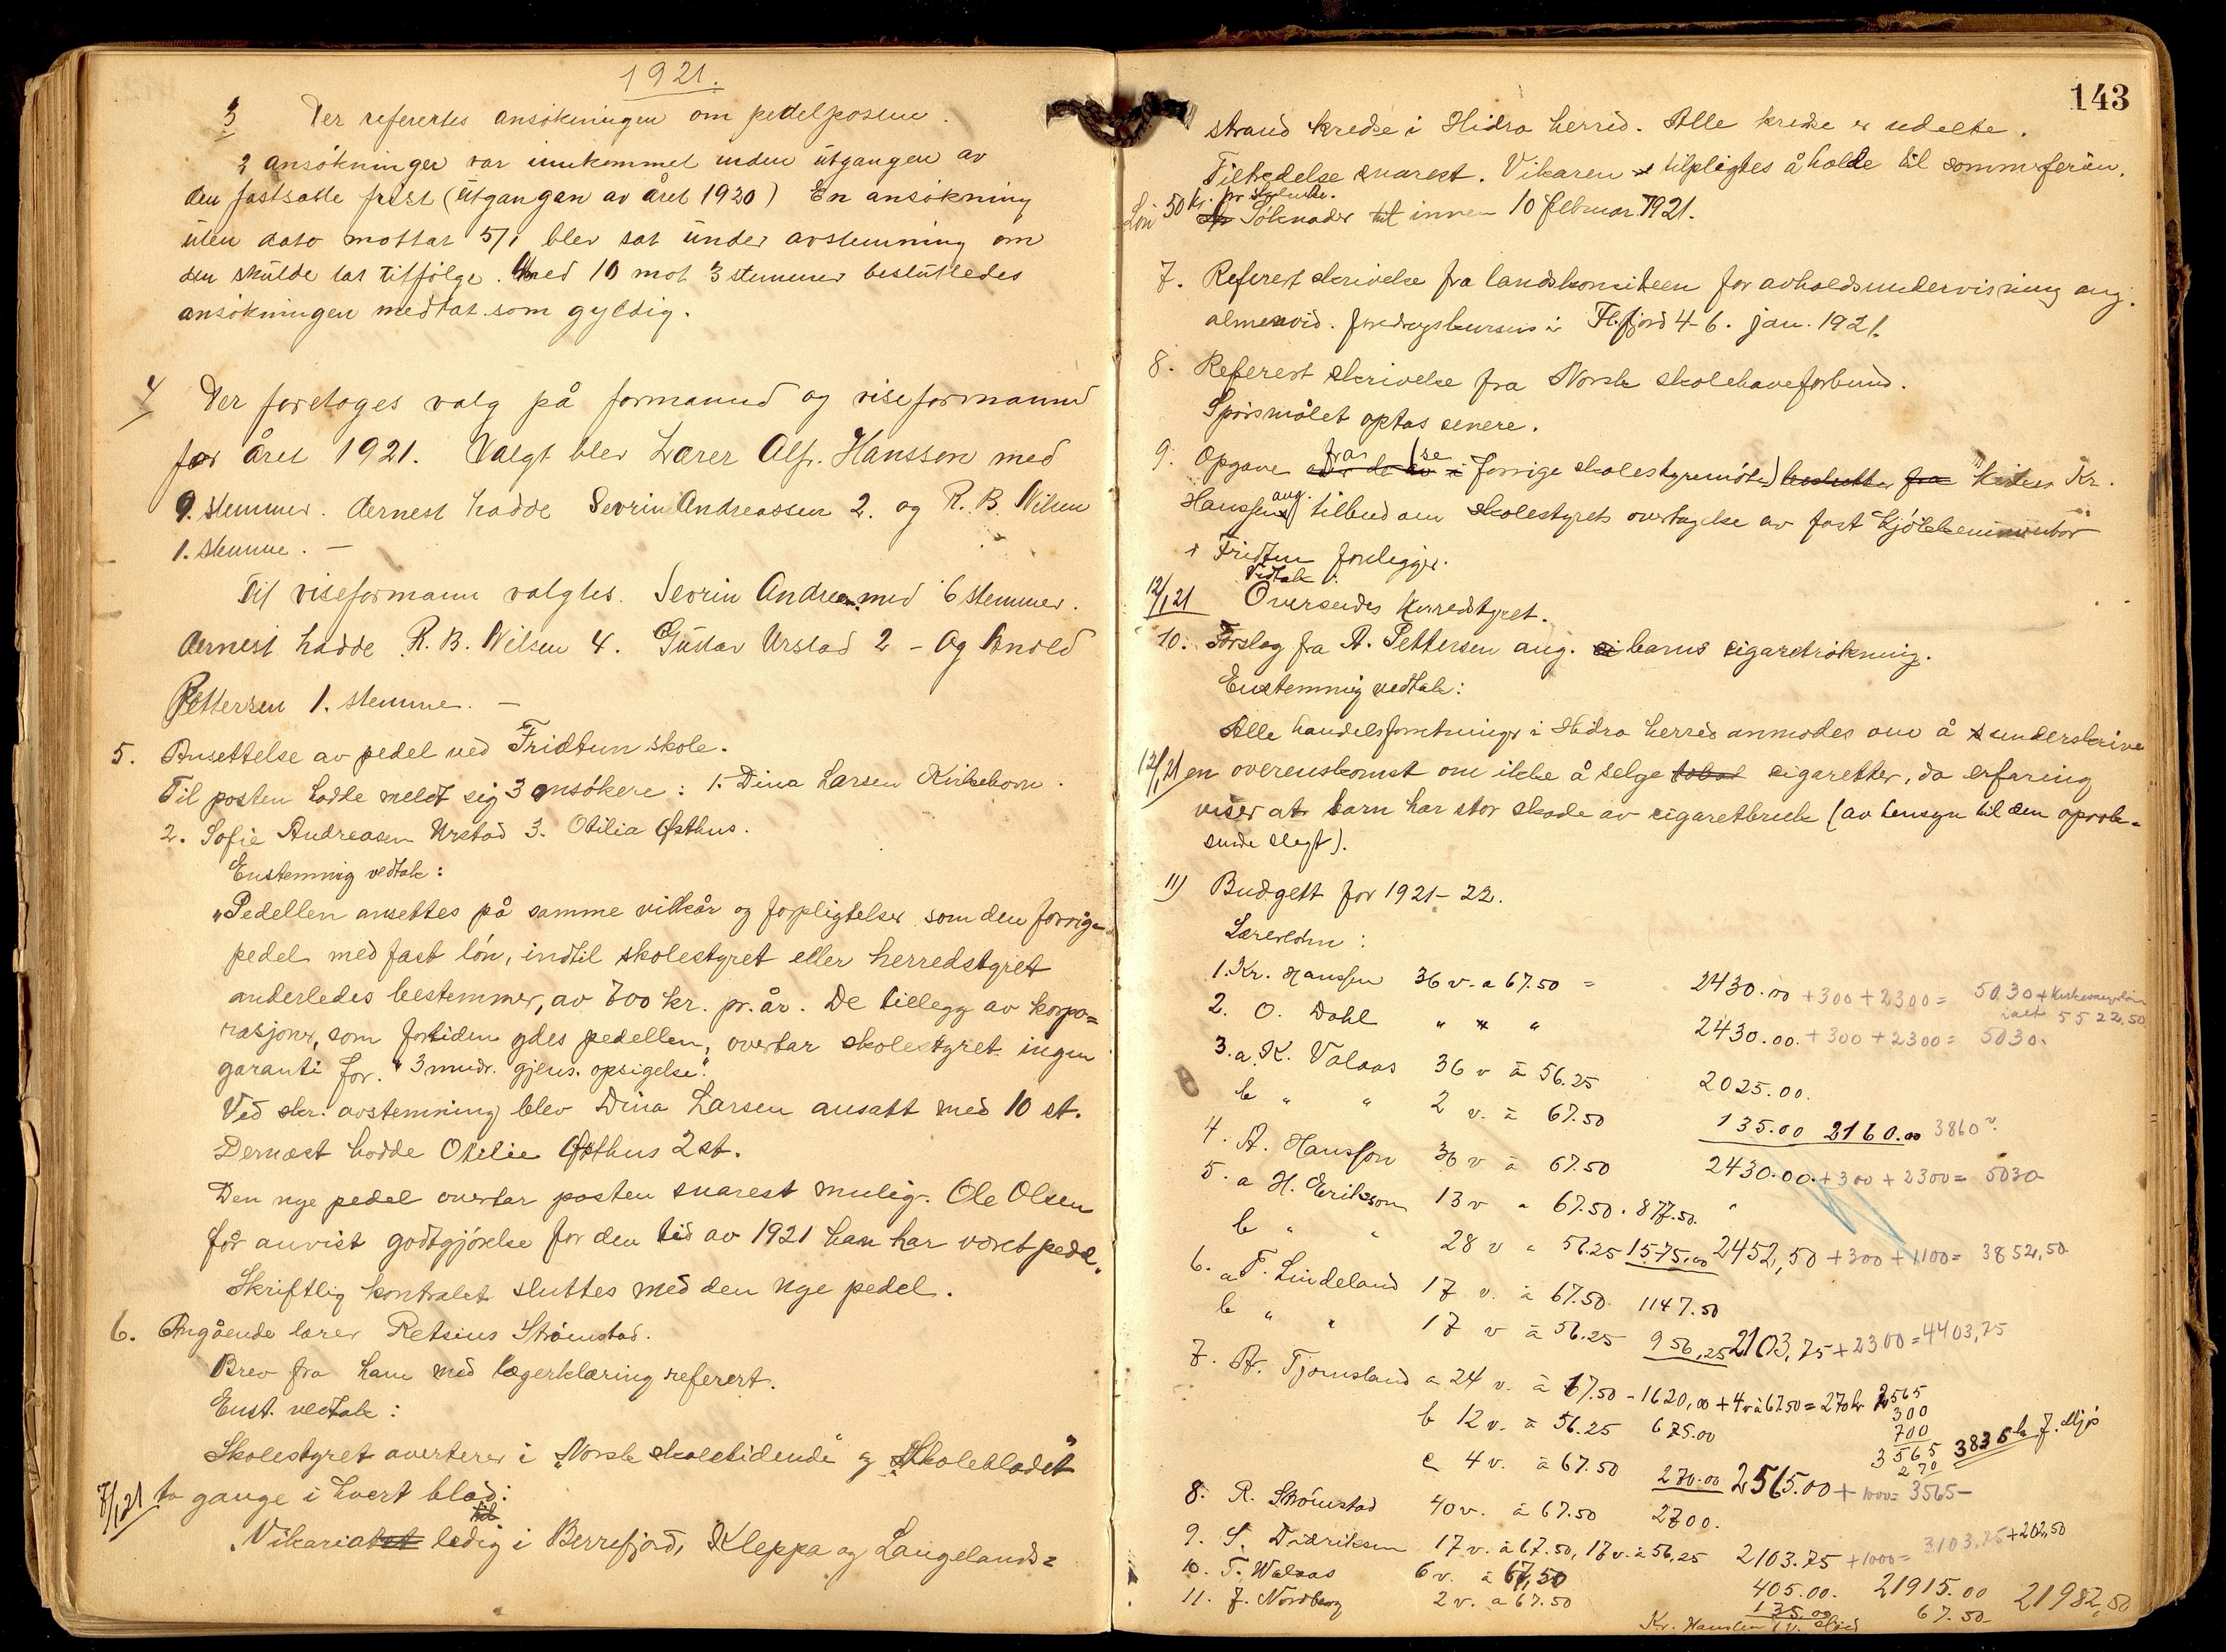 1921.
3 Der refertes ansökningen om pedelposten.
3 ansökninger var innkommet inden utgangen av
den fastsatte frist (Utgangen av året 1920) En ansökning
uten dato mottat 5/1 blev sat under avstemning om
den skulde tas tilfölge. Med 10 mot 3 stemmer besluttedes
ansökningen medtat som gyldig.
4/ Der foretoges valg på formannd og viseformannd
for året 1921. Valgt blev Lærer Alf. Hansson med
9. stemmer. dernest hadde Sevrin Andreassen 2. og R. B. Nilsen
1. stemme. —
Til viseformann valgtes. Sevrin Andreas. med 6 stemmer.
dernest hadde R. B. Nilsen 4. Gustav Urstad 2 - og Arnold
Pettersen 1. stemme. —
5. Ansettelse av pedel ved Fridtun skole.
Til posten hadde meldt sig 3 ansökere: 1. Dina Larsen Kirkehavn.
2. Sofie Andreasen Urstad 3. Otilia Østhus.
Enstemmig vedtak:
"Pedellen ansettes på samme vilkår og forpligtelser som den forrige
pedel med fast lön, indtil skolestyret eller herredstyret
anderledes bestemmer, av 700 kr. pr. år. De tillegg av korpo=
rasjoner, som fortiden ydes pedellen, overtar skolestyret ingen
garanti for. "3 mndr. gjens. opsigelse".
Ved skr. avstemning blev Dina Larsen ansatt med 10 st.
Dernæst hadde Otilie Østhus 2 st.
Den nye pedel overtar posten snarest mulig. Ole Olsen
får anvist godtgjörelse for den tid av 1921 han har været pedel.
Skriftlig kontrakt sluttes med den nye pedel.
6. Angående lærer Retsius Strömstad.
Brev fra ham med lægerklæring referert.
Enst. vedtak:
Skolestyret averterer i "Norsk skoletidende" og "Skolebladet"
7/1 21 to gange i hvert blad:
"Vikariatet ledig i Berrefjord, Kleppa og Langelands=
143
strand kredse i Hidra herred. Alle kredse er udelte.
Tiltredelse snarest. Vikaren tilpligtes å holde til sommerferien.
Lön 50 kr. pr. skoleuke.
Söknader innen 10 februar 1921.
7. Referert skrivelse fra landskomiteen for avholdsundervisning ang.
almenvid. foredragskursus i Fl.fjord 4-6. jan. 1921.
8. Referert skrivelse fra Norsk skolehaveforbund.
Spörsmålet optas senere.
9. Opgave fra (se forrige skolestyremöte) Kr.
Hanssen ang. tilbud om skolestyrets overtagelse av fast kjökkeninventar
i Fridtun foreligger.
Vedtak:
12/1 21 Oversendes herredstyret.
10. Forslag fra A. Pettersen ang. barns cigaretrökning.
Enstemmig vedtak:
Alle handelsforretninger i Hidra herred anmodes om å underskrive
12/1 21 en overenskomst om ikke å selge tobak cigaretter, da erfaring
viser at barn har stor skade av cigaretbruk (av hensyn til den opvok=
sende slegt).
11) Budgett for 1921-22.
Lærerlönn:
1. Kr. Hanssen 36 v. a 67.50 = 2430.00 +300+2300= 5030 +
ialt 5522,50
2. O. Dahl " " " 2430.00. +300+2300= 5030.
3. a. K. Valaas 36 v à 56.25 2025.00.
b " " 2 v. à 67.50 135.00 2160.00 3860
4. A. Hansson 36 v à 67.50 2430.00. +300+2300= 5030
5. a H. Erikson 13 v à 67.50. 877.50.
b " " 28 v à 56.25 1575.00 2452,50 +300+1100= 3852,50
6. a T. Lindeland 17 v. à 67.50 1147.50
b " " 17 v à 56.25 956,25 2103,75 +2300=4403,75
7. A. Tjomsland a 24 v. à 67.50 - 1620,00 + 4 v à 67.50 = 270 kr 2565
300
b 12 v. à 56.25 675.00 700
3565 3835 kr
270
c 4 v. à 67.50 270.00 2565.00 + 1000= 3565-
8. R. Strömstad 40 v. à 67.50 2700.
9. S. Didriksen 17 v. à 67.50, 17 v. à 56,25 2103.75 +1000= 3103,75+202,50
10. T. Walaas 6 v. à 67,50 405.00. 21915.00 21982,50
11. J. Nordberg 2 v. a 67.50 135.00 67.50
Kr. Hanssen 1 v. slöid